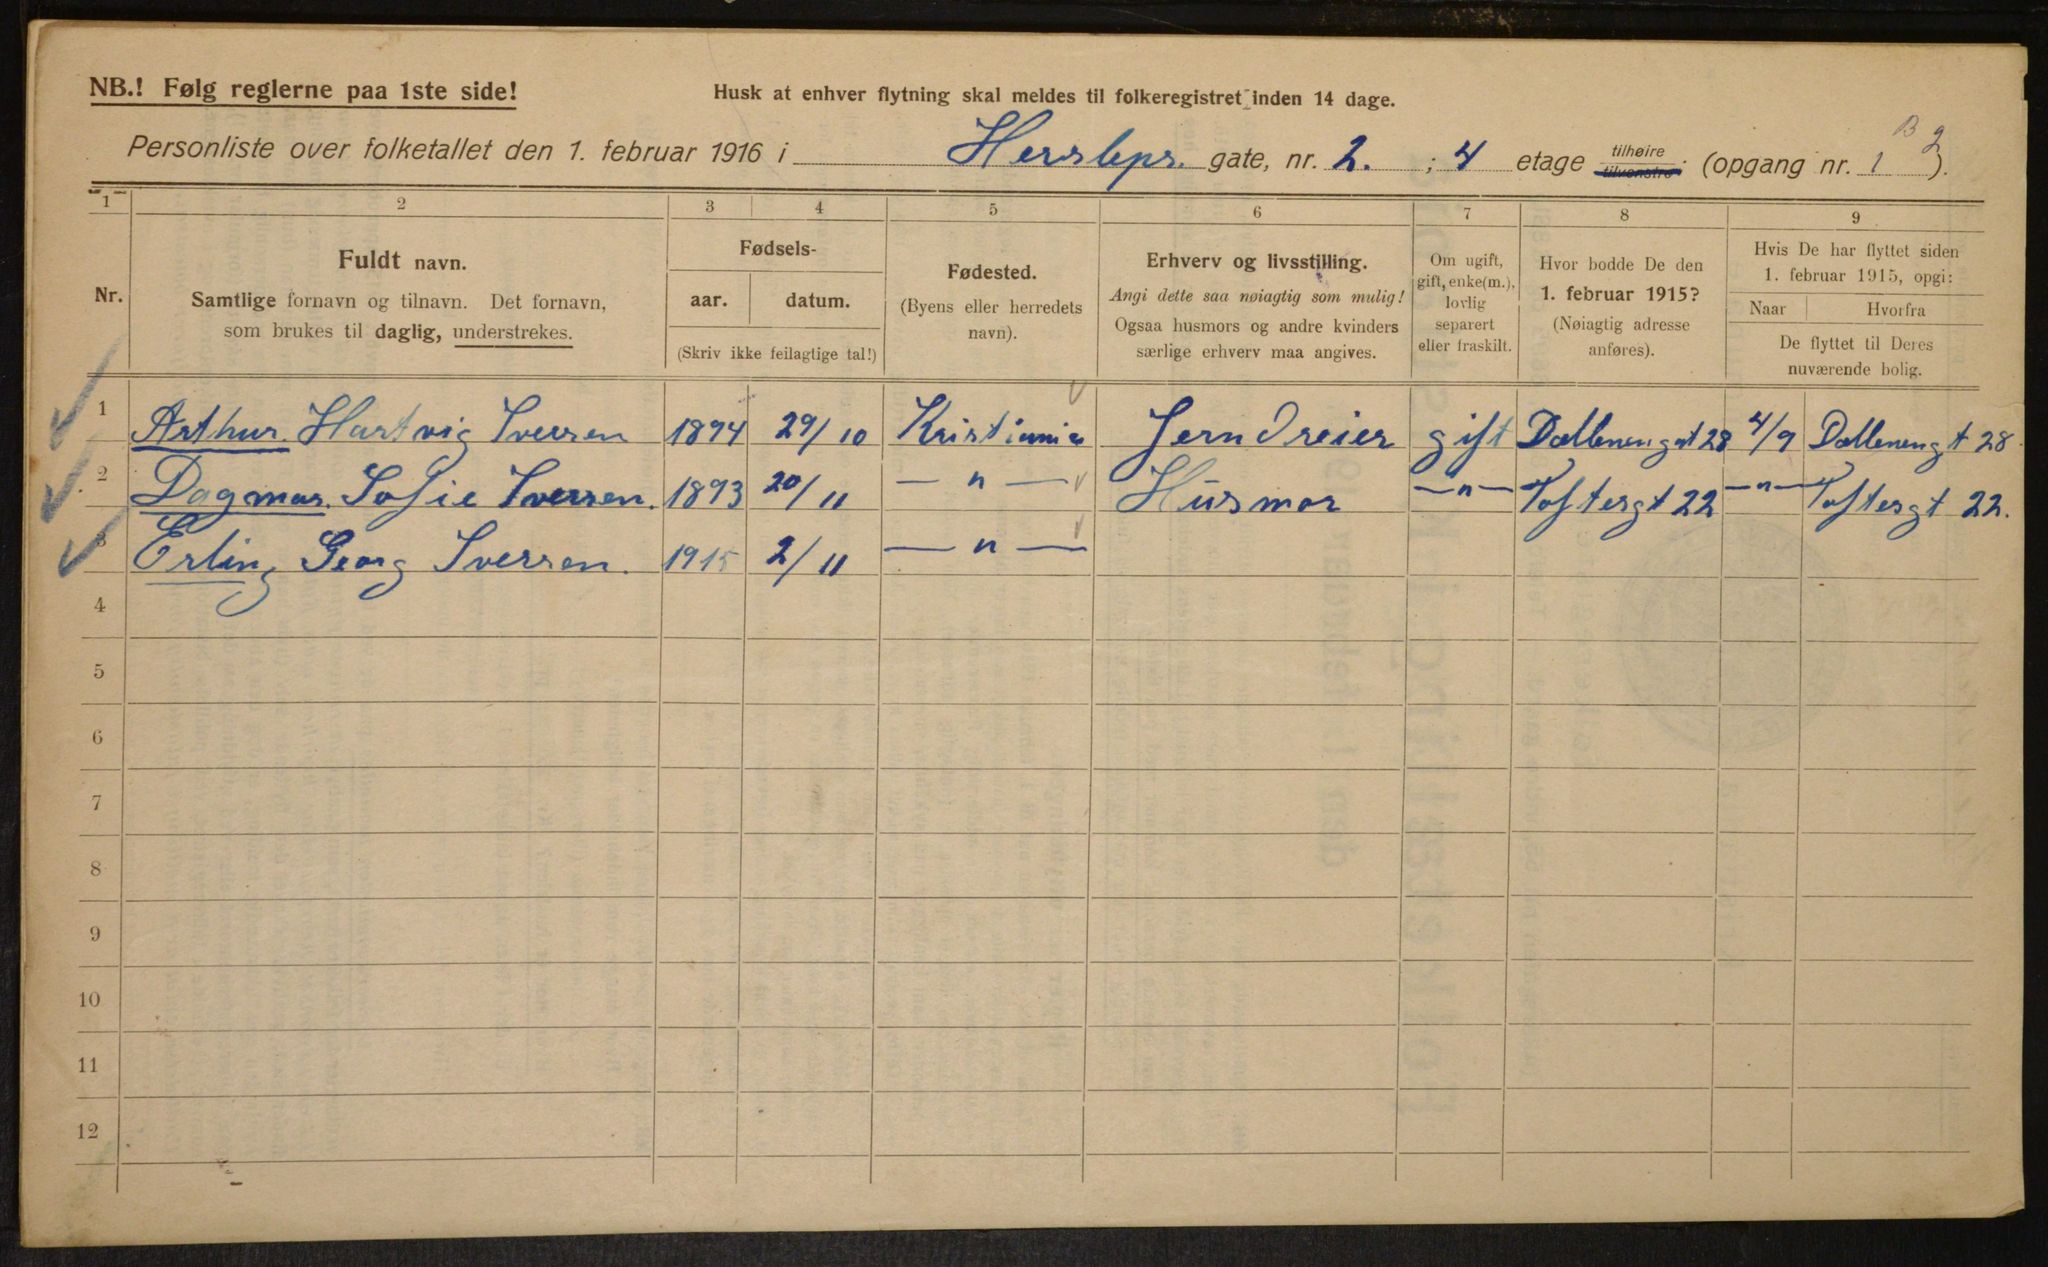 NB.! Følg reglerne paa 1ste side!
Husk at enhver flytning skal meldes til folkeregistret inden 14 dage.
B 2
Personliste over folketallet den 1. februar 1916 i Hersleps. gate, nr. 2. ; 4 etage tilhøire tilvenstre (opgang nr. 1 ).
1 2 3 4 5 6 7 8 9
Nr.
Fuldt navn.
Samtlige fornavn og tilnavn. Det fornavn,
som brukes til daglig, understrekes.
Fødsels-
aar. datum.
(Skriv ikke feilagtige tal!)
Fødested.
(Byens eller herredets
navn).
Erhverv og livsstilling.
Angi dette saa nøiagtig som mulig!
Ogsaa husmors og andre kvinders
særlige erhverv maa angives.
Om ugift,
gift, enke(m.),
lovlig
separert
eller fraskilt.
Hvor bodde De den
1. februar 1915?
(Nøiagtig adresse
anføres).
Hvis De har flyttet siden
1. februar 1915, opgi:
Naar Hvorfra
De flyttet til Deres
nuværende bolig.
1 Arthur. Hartvig Iversen 1894 29/10 Kristiania Jerndreier gift Dællenengat 28 4/9 Dællenengt 28
2 Dagmar. Sofie Iversen. 1893 20/11 — " — Husmor — " — Toftesgt 22 — " — Toftesgt 22.
3 Erling Georg Iversen. 1915 2/11 — " —
4
5
6
7
8
9
10
11
12